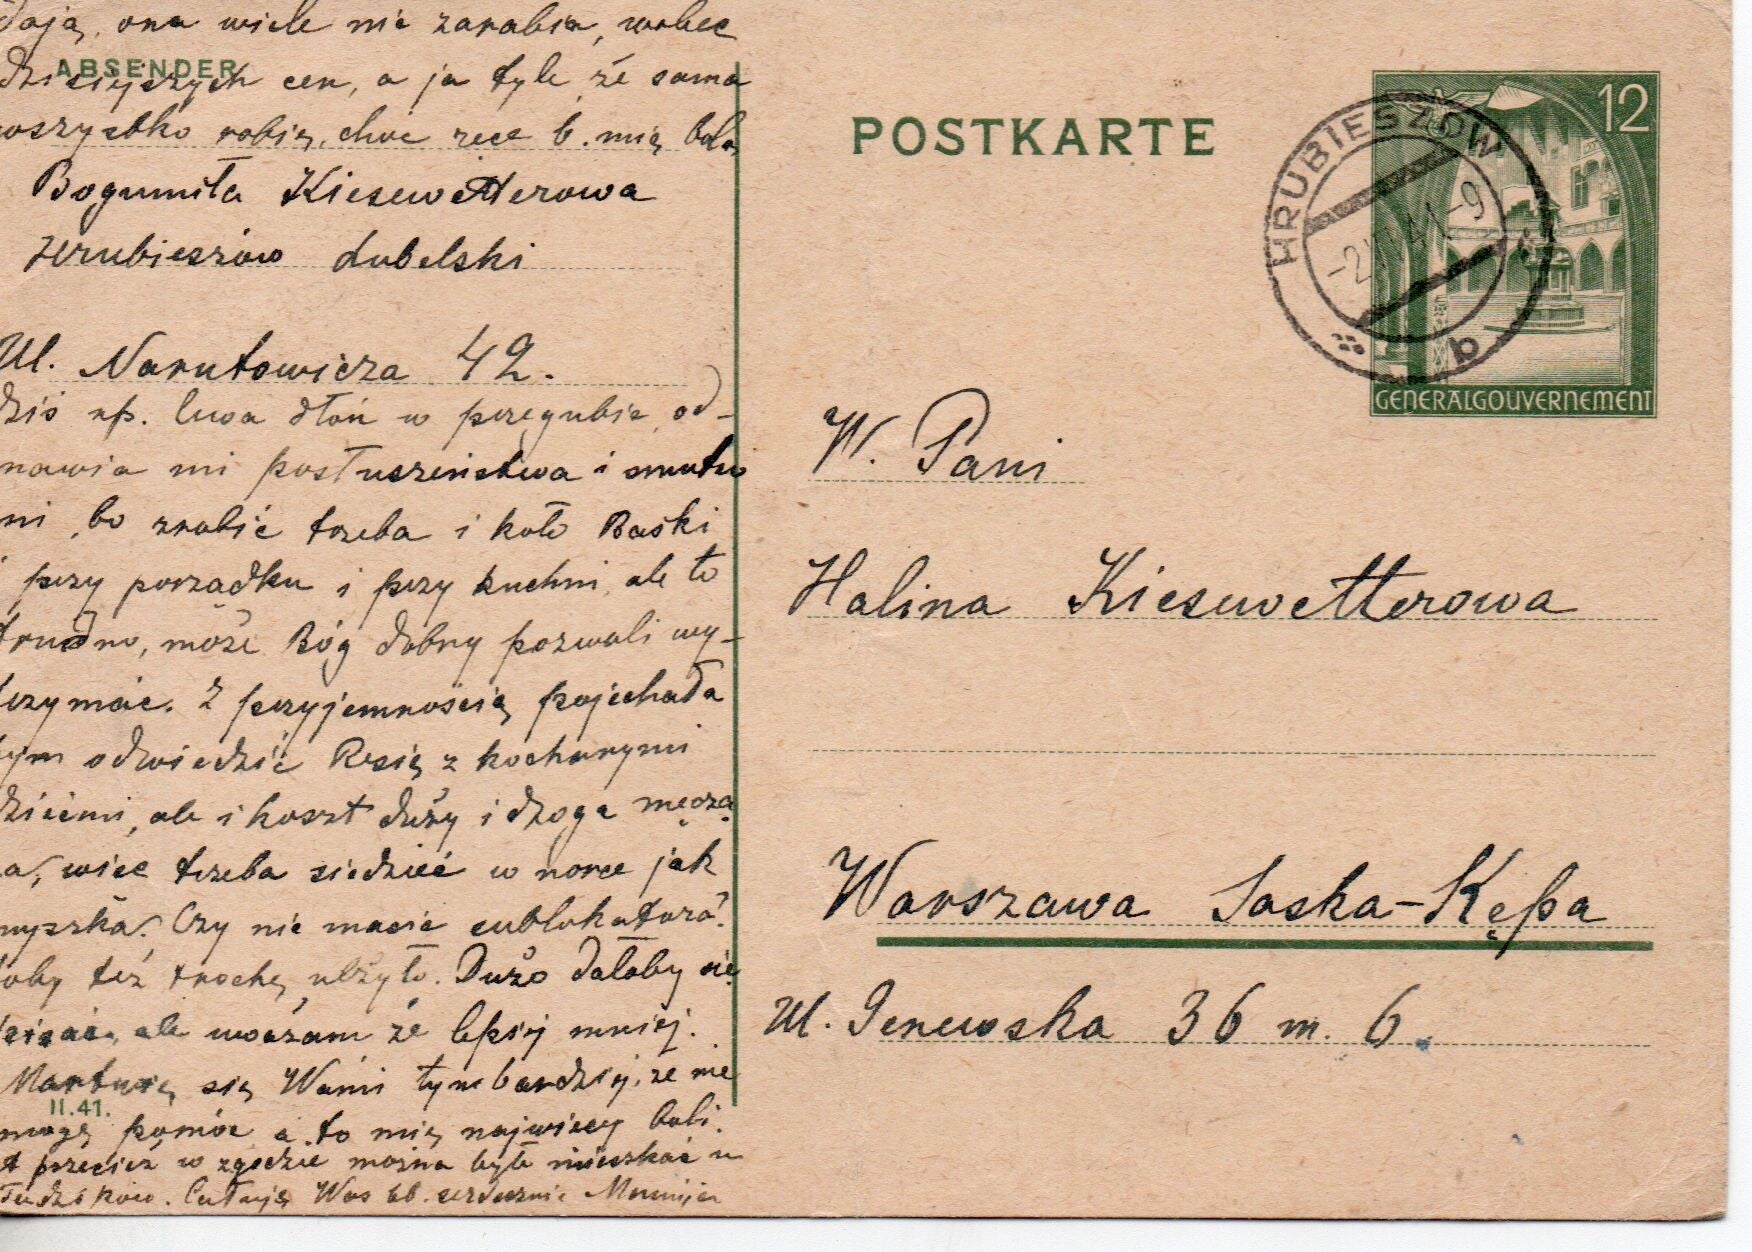 dają, ona wiele nie zarabia, wobec
ABSENDER
dzisiejszych cen, a ja tyle że sama
wszystko robię, choć ręce b. mię bolą
Bogumiła Kiesewetterowa
Hrubieszów Lubelski
Ul. Narutowicza 42.
dziś np. lewa dłoń w przegubie od-
mawia mi posłuszeństwa i smutno
mi, bo zrobić trzeba i koło Baśki
i przy porządku i przy kuchni, ale to
trudno, może Bóg dobry pozwoli wy-
trzymać. Z przyjemnością pojechała
bym odwiedzić Resię z kochanymi
dziećmi, ale i koszt duży i droga męczą
ca, więc trzeba siedzieć w norce jak
myszka. Czy nie macie sublokatora?
toby też trochę ulżyło. Dużo dałoby się
pisać, ale uważam że lepiej mniej.
Martwię się Wami tym bardziej, że nie
II.41.
mogę pomóc a to mię najwięcej boli.
A przecież w zgodzie można było mieszkać u
Cału­ję Was bb. serdecznie Mamusia
POSTKARTE
12
HRUBIESZÓW
-2.VI.41-9
b
GENERALGOUVERNEMENT
W. Pani
Halina Kiesewetterowa
Warszawa Saska-Kępa
Ul. Genewska 36 m. 6.